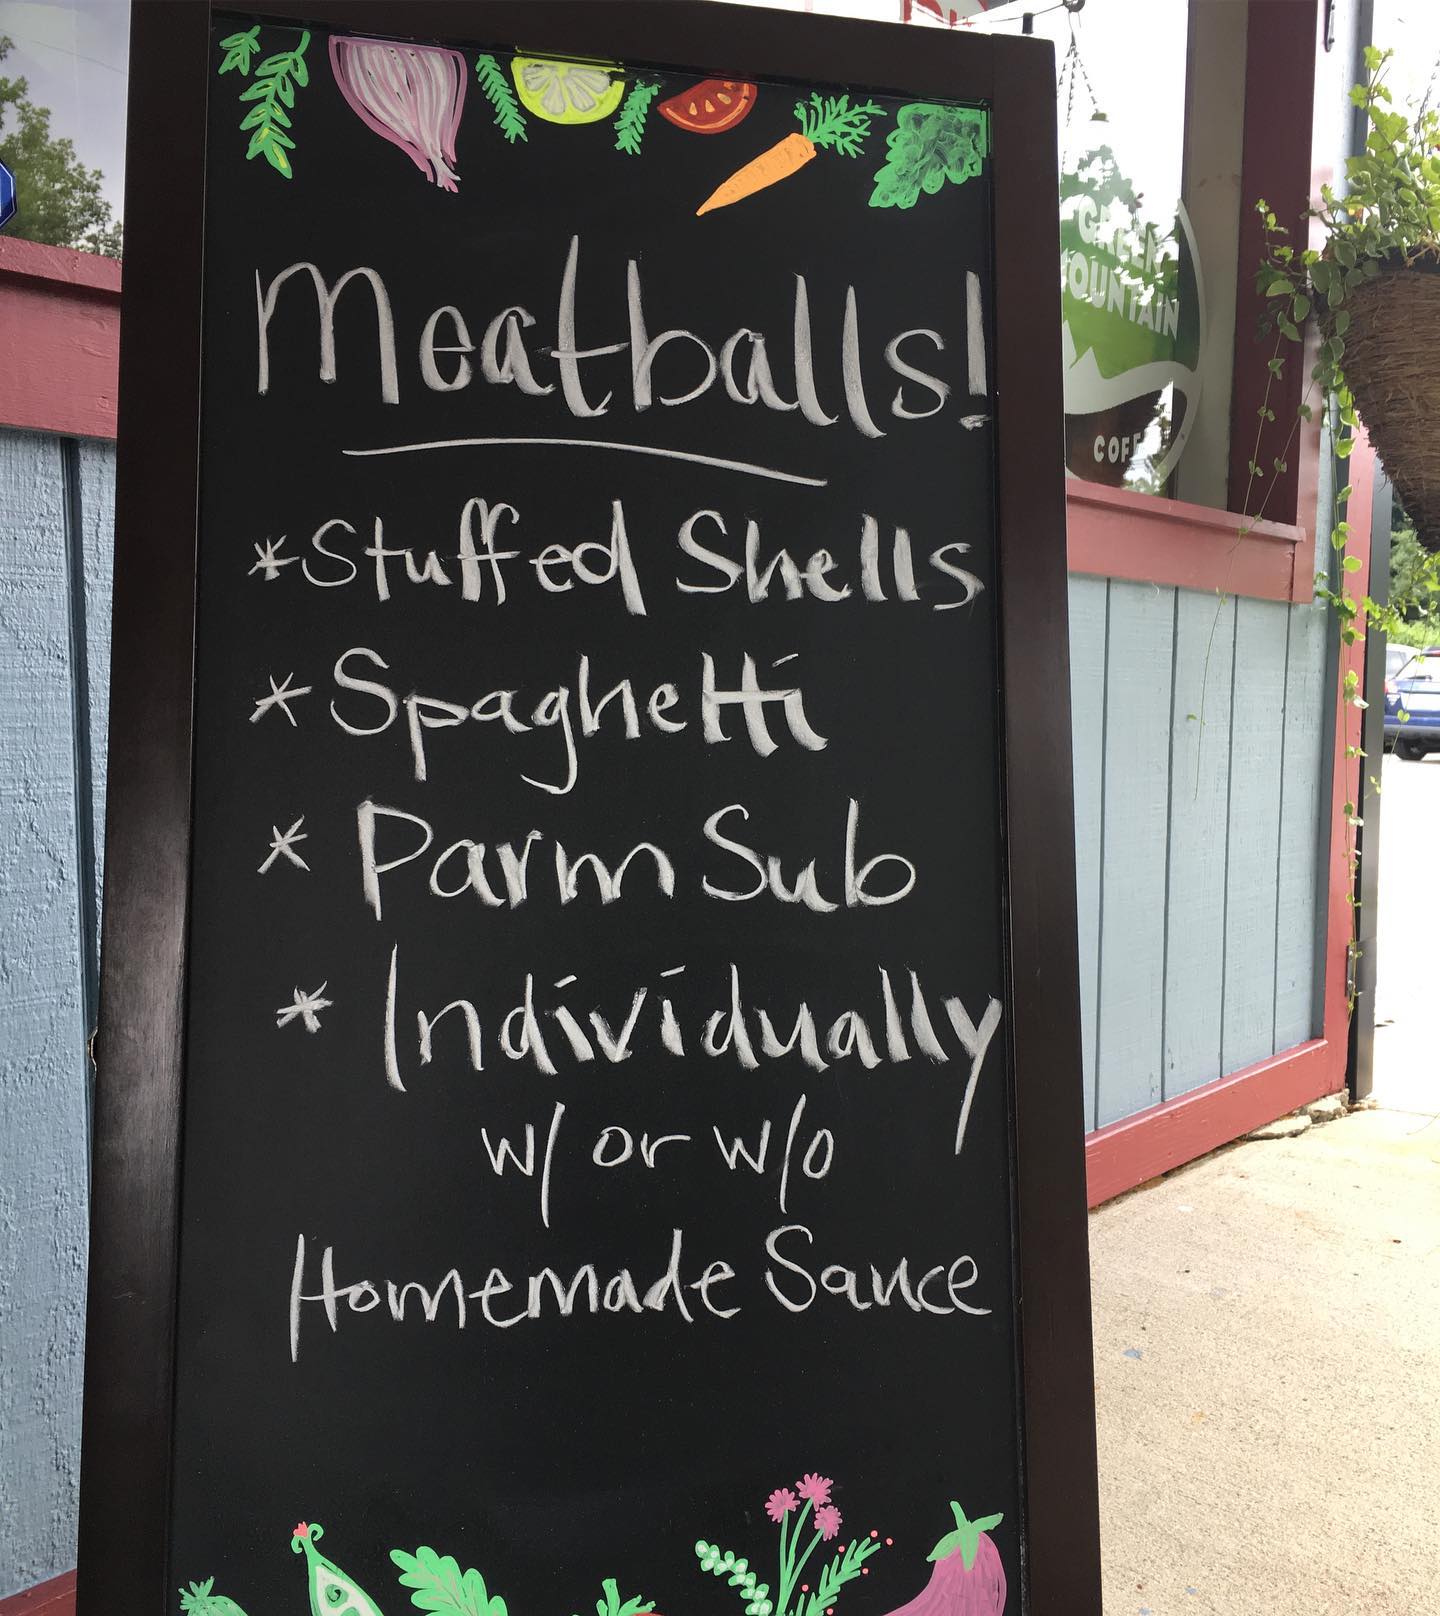 Meatballs!
*Stuffed Shells
* Spaghetti
* Parm Sub
* Individually
w/ or w/o
Homemade Sauce
GREEN
MOUNTAIN
COFF